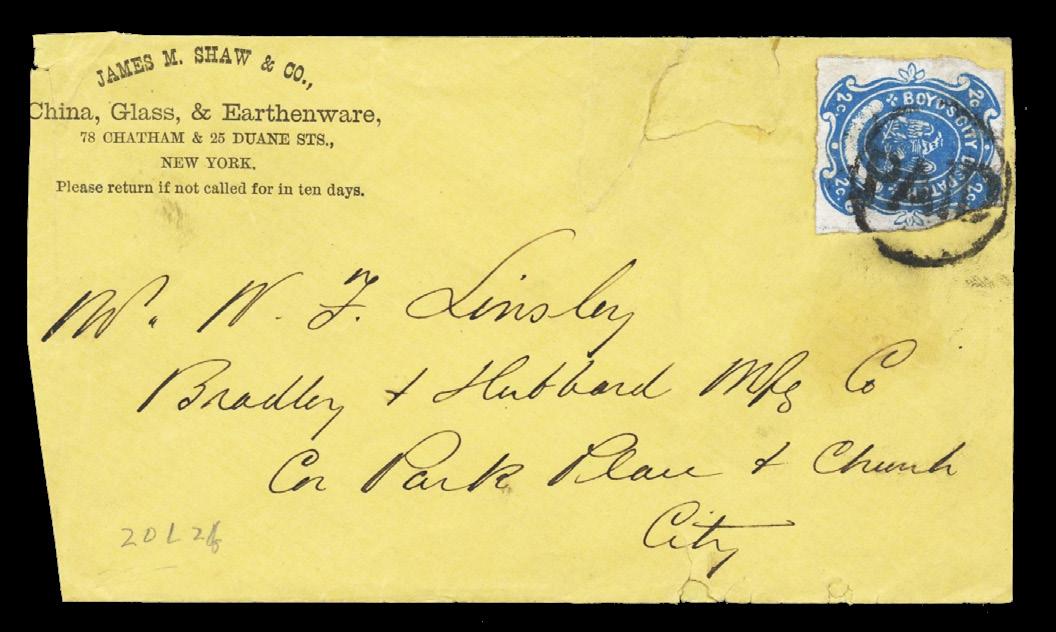 JAMES M. SHAW & CO.,
China, Glass, & Earthenware,
78 CHATHAM & 25 DUANE STS.,
NEW YORK.
Please return if not called for in ten days.
BOYD'S CITY DISPATCH
2c 2c 2c 2c
PAID
Mr. W. F. Linsley
Bradley & Hubbard Mfg Co
Cor Park Place & Church
City
20L26